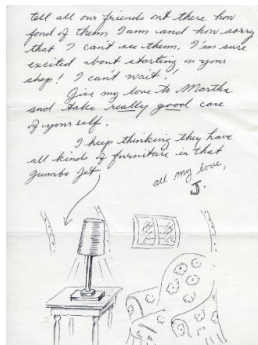 tell all our friends out there how
fond of them I am and how sorry
that I can't see them. I'm sure
excited about starting on your
shop! I can't wait!
Give my love to Martha
and take really good care
of yourself.
I keep thinking they have
all kinds of furniture in that
Jumbo Jet
all my love,
J.